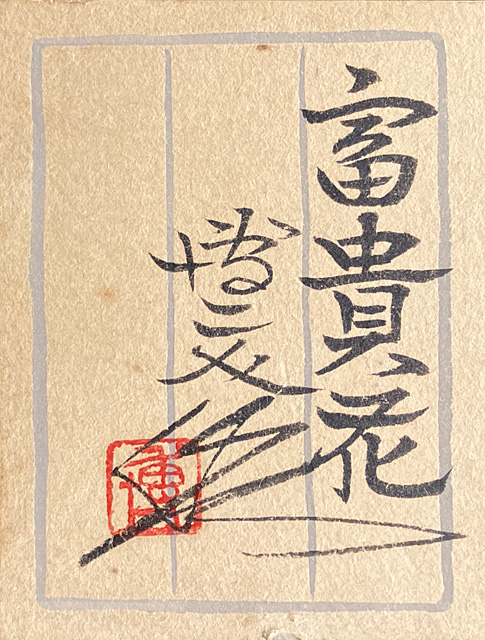 富貴花
博文